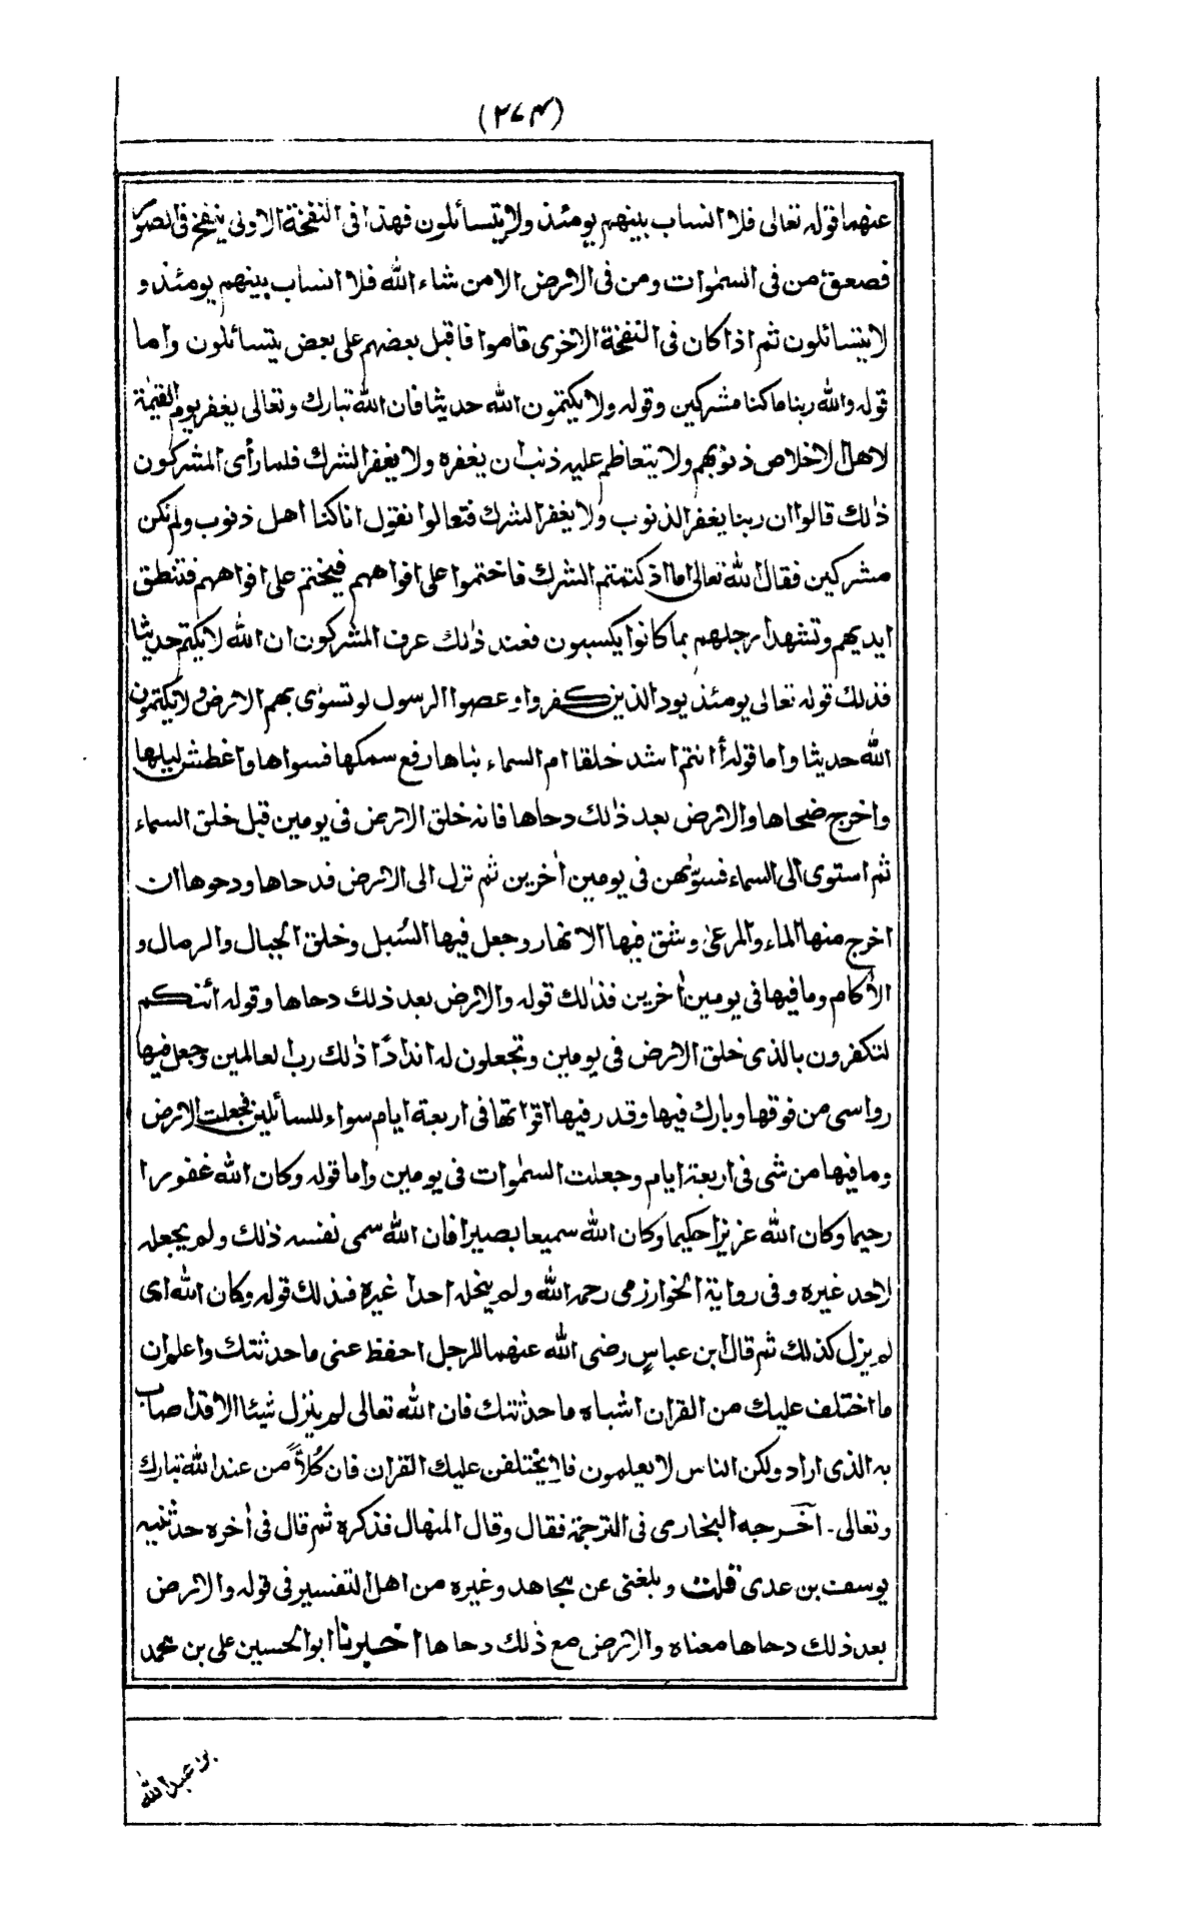 (٢٧٤)
عنهما قوله تعالى فلا انساب بينهم يومئذ ولا يتسائلون فهذا فى النفخة الاولى ينفخ فى الصور
فصعق من فى السمٰوات ومن فى الارض الا من شاء الله فلا انساب بينهم يومئذ و
لا يتسائلون ثم اذا كان فى النفخة الاخرى قاموا فاقبل بعضهم على بعض يتسائلون واما
قوله والله ربنا ما كنا مشركين وقوله ولا يكتمون الله حديثا فان الله تبارك وتعالى يغفر يوم القيٰمة
لاهل الاخلاص ذنوبهم ولا يتعاظم عليه ذنب ان يغفره ولا يغفر الشرك فلما رأى المشركون
ذٰلك قالوا ان ربنا يغفر الذنوب ولا يغفر الشرك فتعالوا نقول انا كنا اهل ذنوب ولم نكن
مشركين فقال الله تعالى اما اذ كتمتم الشرك فاختموا على افواههم فيختم على افواههم فتنطق
ايديهم وتشهد ارجلهم بما كانوا يكسبون فعند ذٰلك عرف المشركون ان الله لا يكتم حديثا
فذلك قوله تعالى يومئذ يود الذين كفروا وعصوا الرسول لو تسوّى بهم الارض ولا يكتمون
الله حديثا واما قوله أأنتم اشد خلقا ام السماء بناها رفع سمكها فسواها واغطش ليلها
واخرج ضحاها والارض بعد ذٰلك دحاها فانه خلق الارض فى يومين قبل خلق السماء
ثم استوى الى السماء فسوّٰهن فى يومين اٰخرين ثم نزل الى الارض فدحاها ودحوها ان
اخرج منها الماء والمرعىٰ وشق فيها الانهار وجعل فيها السُبل وخلق الجبال والرمال و
الأكام وما فيها فى يومين اٰخرين فذٰلك قوله والارض بعد ذلك دحاها وقوله ائنكم
لتكفرون بالذى خلق الارض فى يومين وتجعلون له اندادًا ذٰلك رب العالمين وجعل فيها
رواسى من فوقها وبارك فيها وقدر فيها اقواتها فى اربعة ايام سواء للسائلين فجعلت الارض
وما فيها من شى فى اربعة ايام وجعلت السمٰوات فى يومين واما قوله وكان الله غفورا
رحيما وكان الله عزيزا حكيما وكان الله سميعا بصيرا فان الله سمى نفسه ذلك ولم يجعله
لاحد غيره وفى رواية الخوارزمى رحمه الله ولم ينحله احدا غيره فذلك قوله وكان الله اى
لم يزل كذلك ثم قال ابن عباسٍ رضى الله عنهما للرجل احفظ عنى ما حدثتك واعلم ان
ما اختلف عليك من القران اشباه ما حدثتك فان الله تعالى لم ينزل شيئا الا قد اصاب
به الذى اراد ولكن الناس لا يعلمون فلا يختلفن عليك القران فان كُلاًّ من عند الله تبارك
وتعالى۔ آخرجه البخارى فى الترجمة فقال وقال المنهال فذكره ثم قال فى اٰخره حدثنيه
يوسف بن عدى قلت وبلغنى عن مجاهد وغيره من اهل التفسير فى قوله والارض
بعد ذلك دحاها معناه والارض مع ذٰلك دحاها اخبرنا ابو الحسين على بن محمد
بن عبد الله